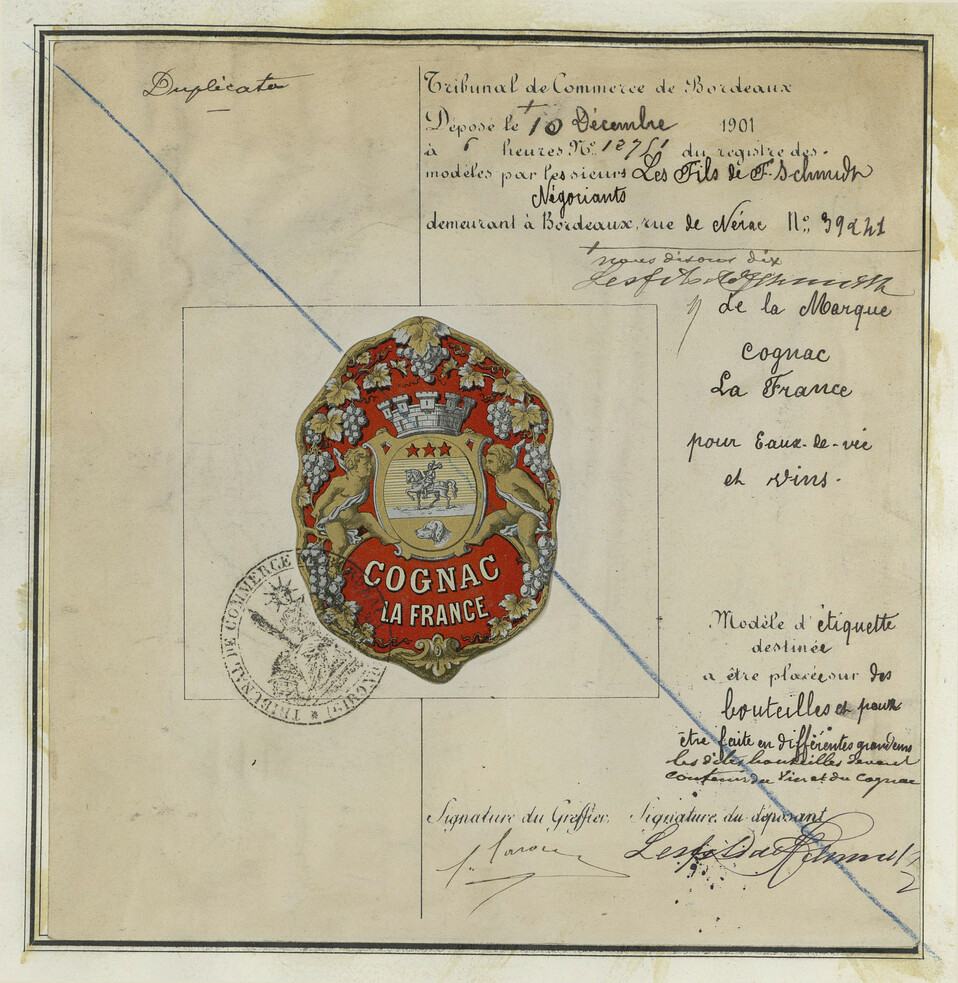 Duplicata
Tribunal de Commerce de Bordeaux
Déposé le + 10 Décembre 1901
à 6 heures No. 12751 du registre des
modèles par les sieurs Les Fils de F. Schmidt
Négociants
demeurant à Bordeaux, rue de Nérac No. 39 à 41
+ nous disons dix
Les fils de F Schmidt
de la Marque
Cognac
La France
pour Eaux-de-vie
et vins.
COGNAC
LA FRANCE
TRIBUNAL DE COMMERCE
Modèle d'étiquette
destinée
a être placée sur des
bouteilles et pour
être faite en différentes grandeurs
les dites bouteilles devant
contenir du Vin et du Cognac
Signature du Greffier. Signature du déposant
Les fils de F Schmidt